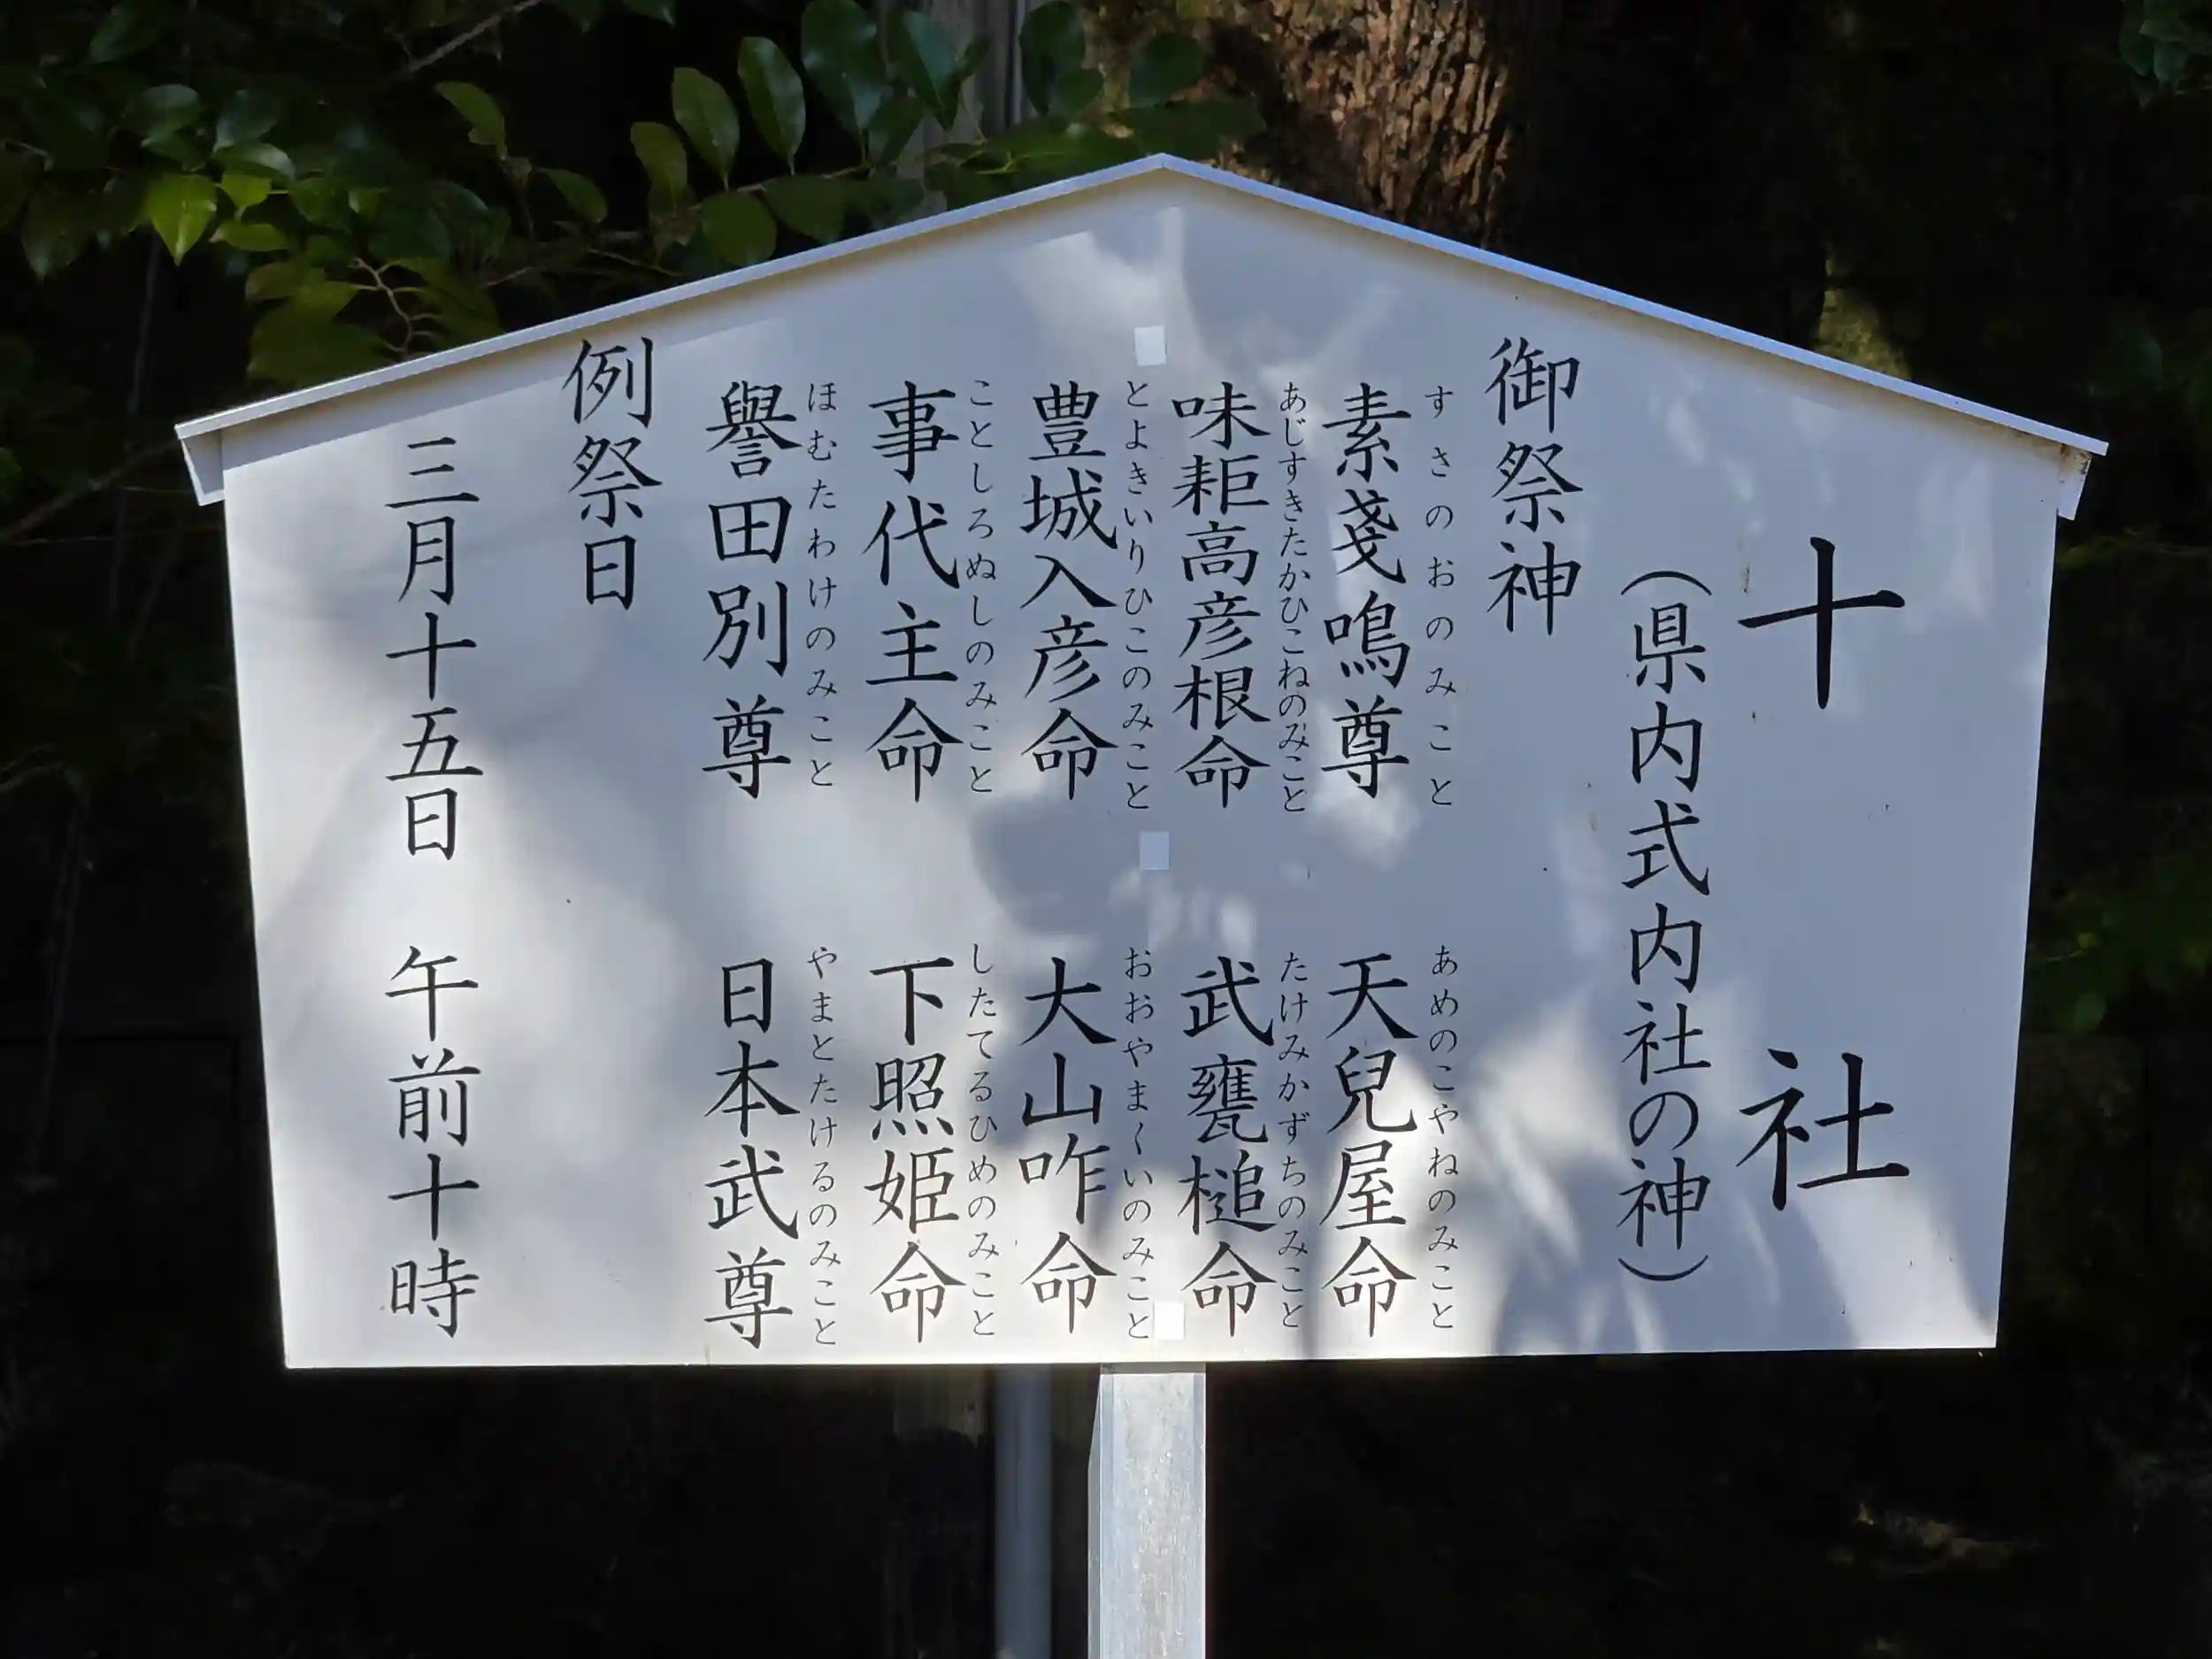 十社
（県内式内社の神）
御祭神
すさのおのみこと
素戔嗚尊
あめのこやねのみこと
天兒屋命
あじすきたかひこねのみこと
味耟高彦根命
たけみかずちのみこと
武甕槌命
とよきいりひこのみこと
豊城入彦命
おおやまくいのみこと
大山咋命
ことしろぬしのみこと
事代主命
したてるひめのみこと
下照姫命
ほむたわけのみこと
譽田別尊
やまとたけるのみこと
日本武尊
例祭日
三月十五日　午前十時